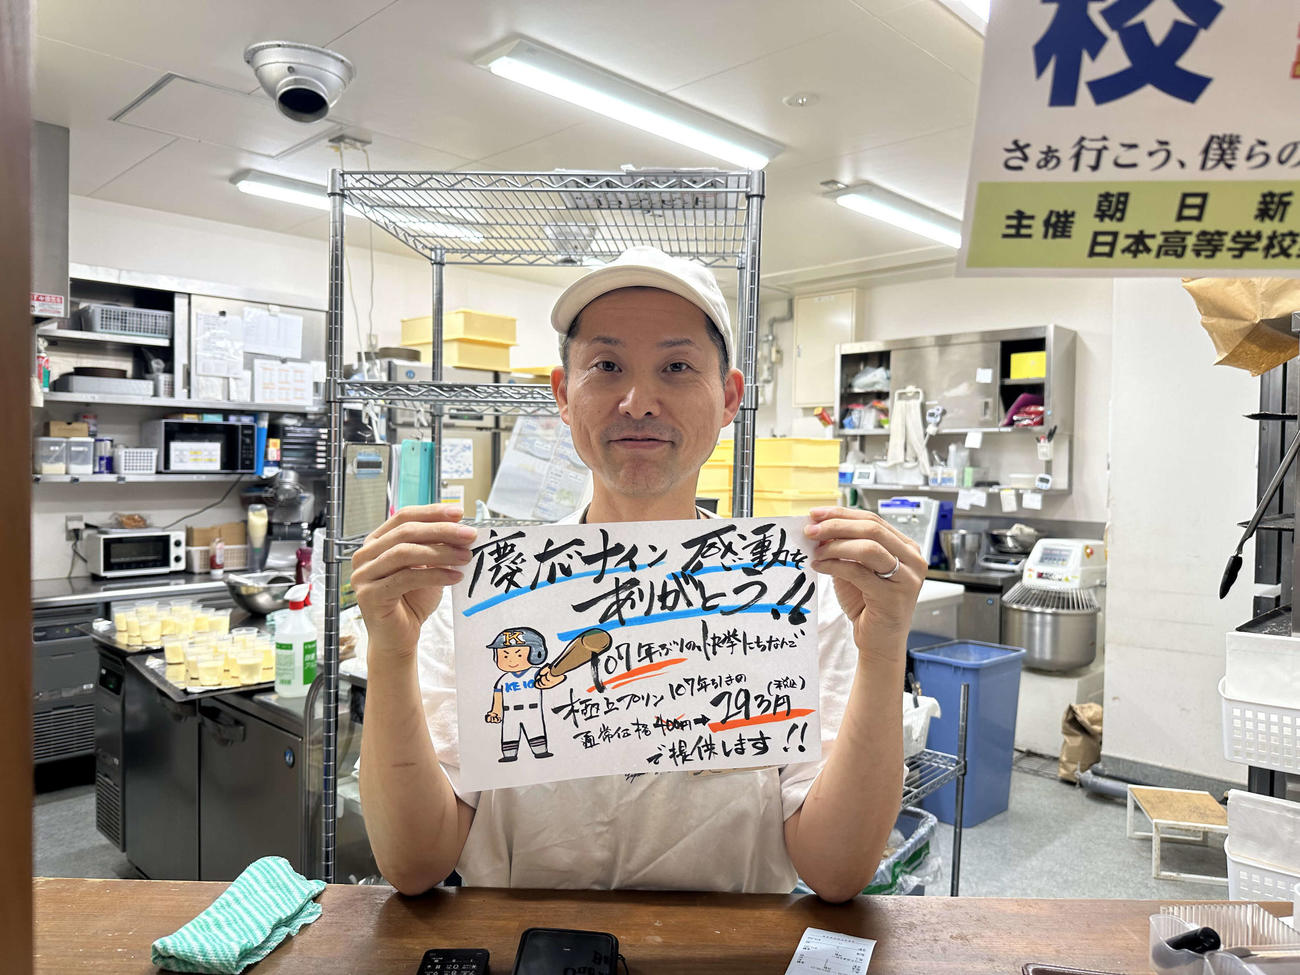 校
さぁ行こう、僕らの
主催
朝日新
日本高等学校
慶応ナイン 感動を
ありがとう!!
K
KEIO
107年ぶりの快挙にちなんで
極上プリン 107年引きの
通常価格 400円→293円(税込)
で提供します!!